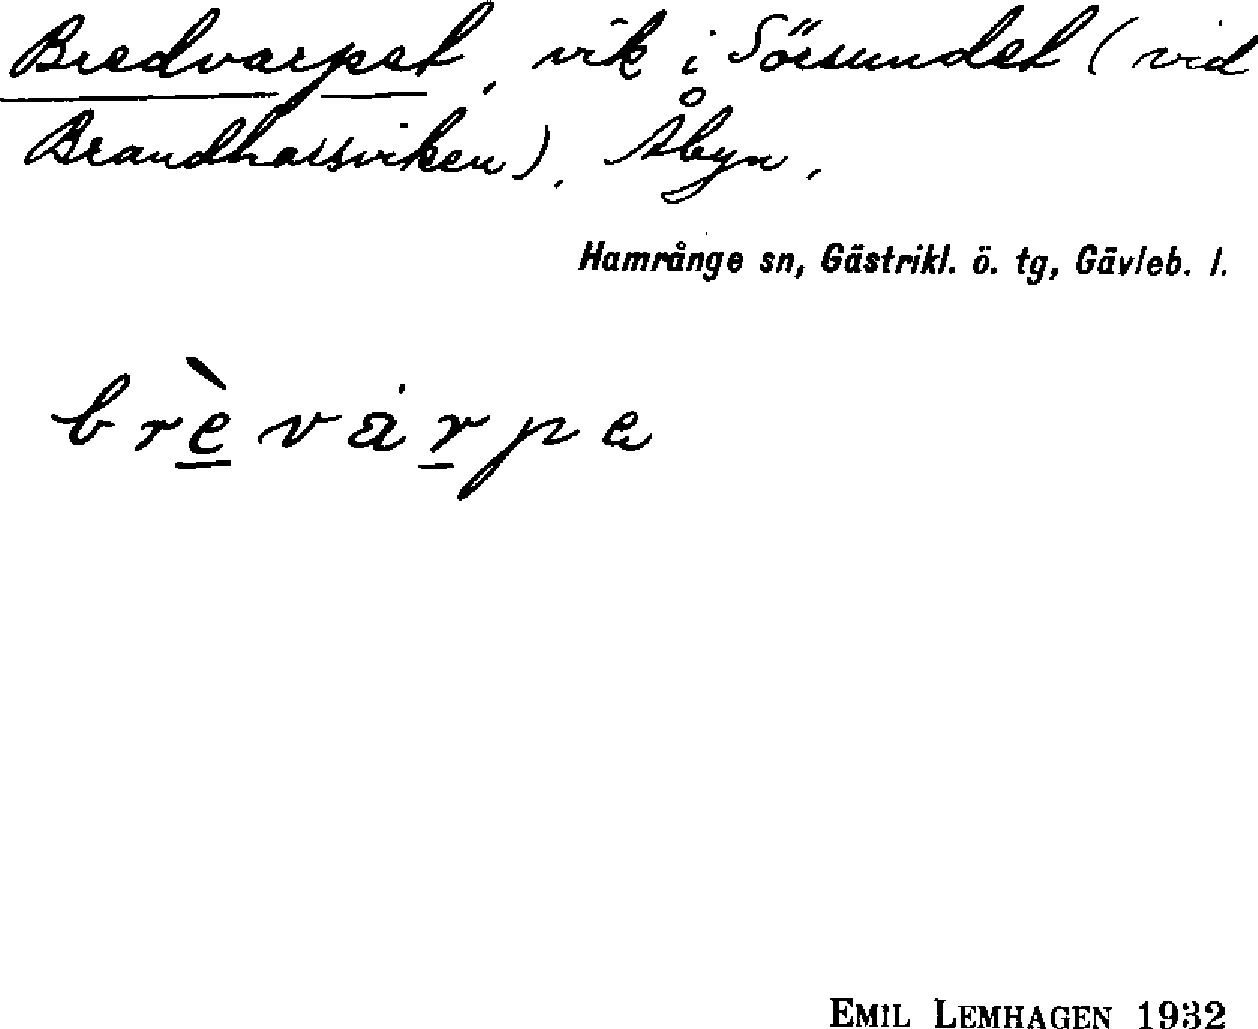 Bredvarpet, vik i Sörsundet (vid
Brandharsviken), Åbyn,
Hamrånge sn, Gästrikl. ö. tg, Gävleb. l.
brèvárpe
EMIL LEMHAGEN 1932